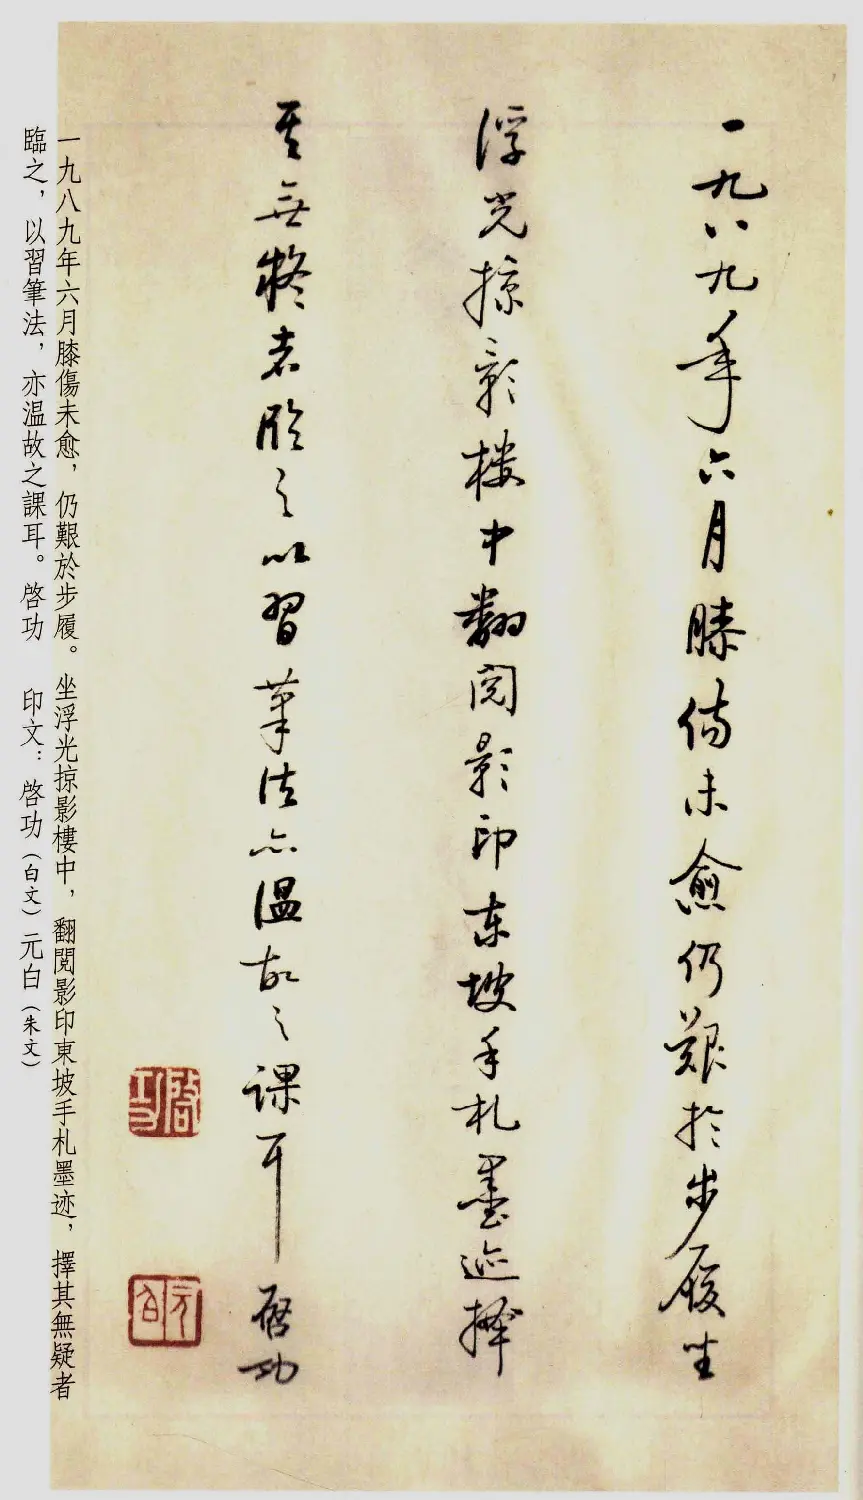 一九八九年六月膝傷未愈仍艱於步履坐
浮光掠影楼中翻閱影印東坡手札墨迹擇
其無疑者臨之以習筆法亦溫故之課耳 啓功
啓功
元白
一九八九年六月膝傷未愈，仍艱於步履。坐浮光掠影樓中，翻閱影印東坡手札墨迹，擇其無疑者
臨之，以習筆法，亦溫故之課耳。啓功　印文：啓功（白文）元白（朱文）